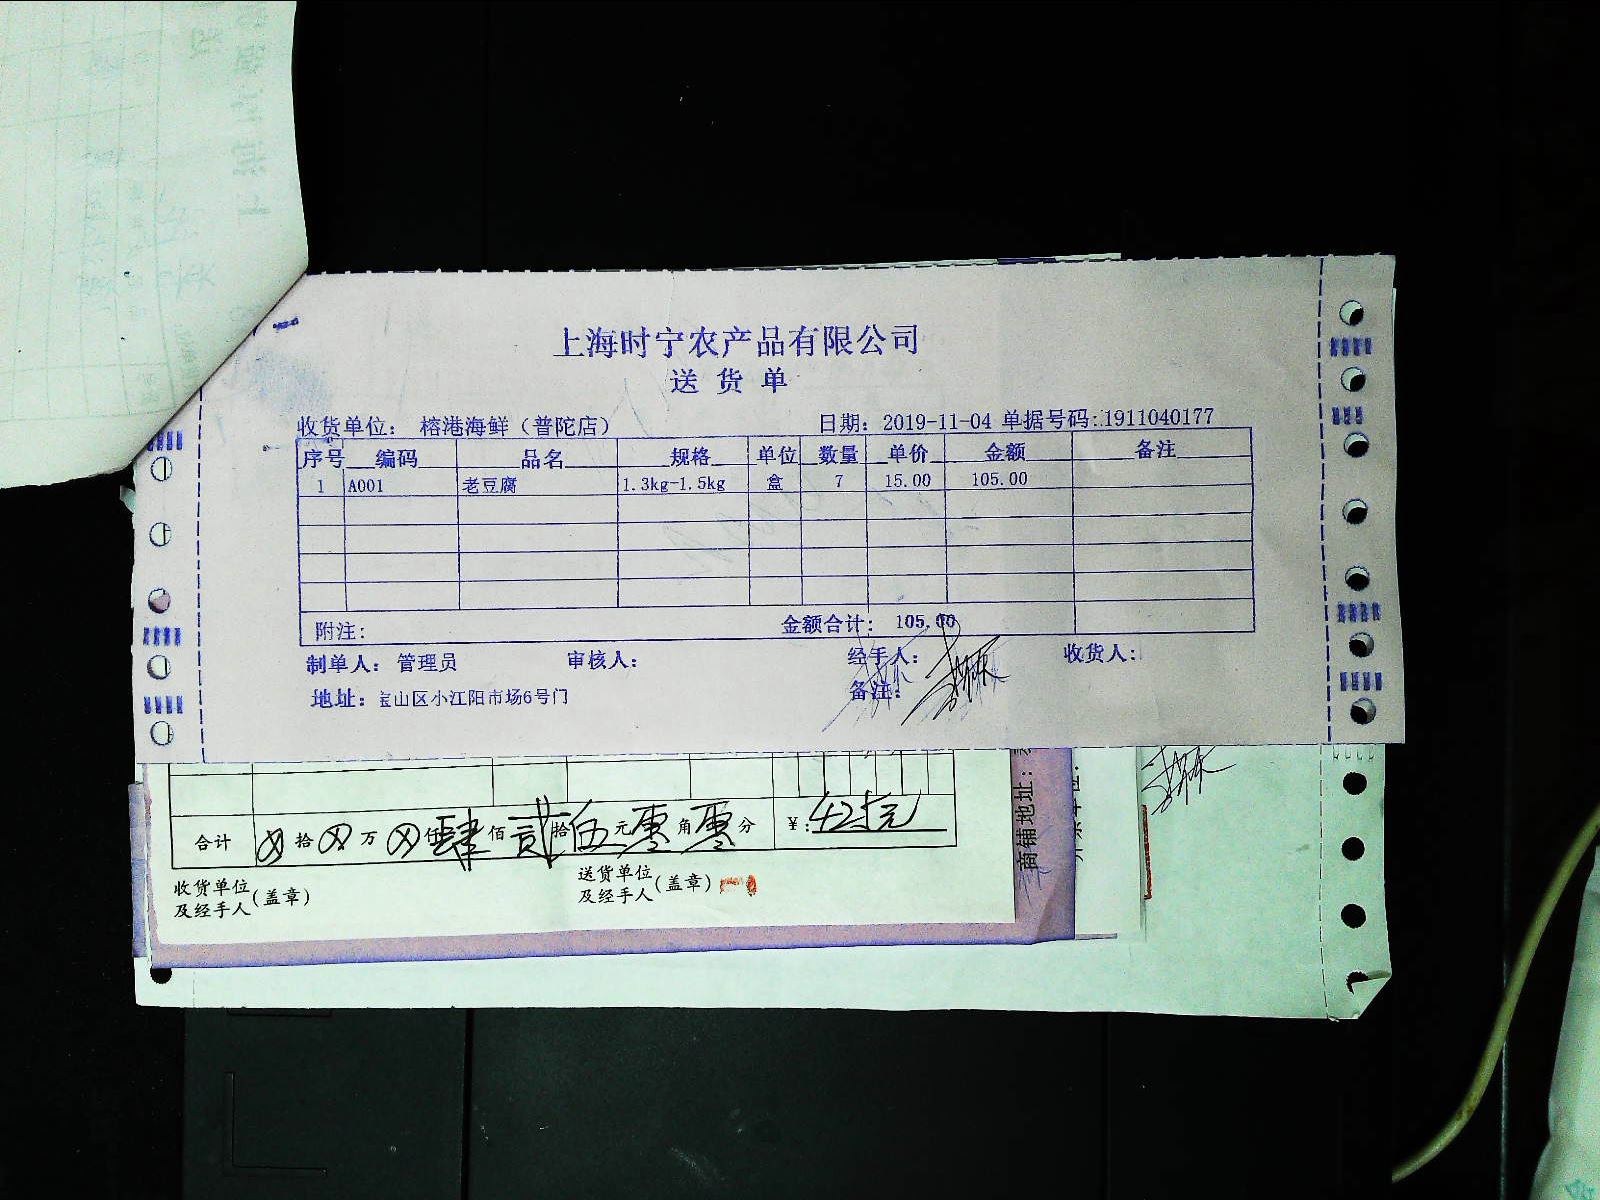 上海时宁农产品有限公司
送货单
收货单位： 榕港海鲜（普陀店） 日期：2019-11-04 单据号码:1911040177
序号 编码 品名 规格 单位 数量 单价 金额 备注
1 A001 老豆腐 1.3kg-1.5kg 盒 7 15.00 105.00
附注: 金额合计: 105.00
制单人：管理员 审核人: 经手人: 收货人:
地址：宝山区小江阳市场6号门 备注:
合计 拾 万 仟肆佰贰拾伍元零角零分 ¥:425元
收货单位及经手人(盖章) 送货单位及经手人(盖章)
商铺地址: